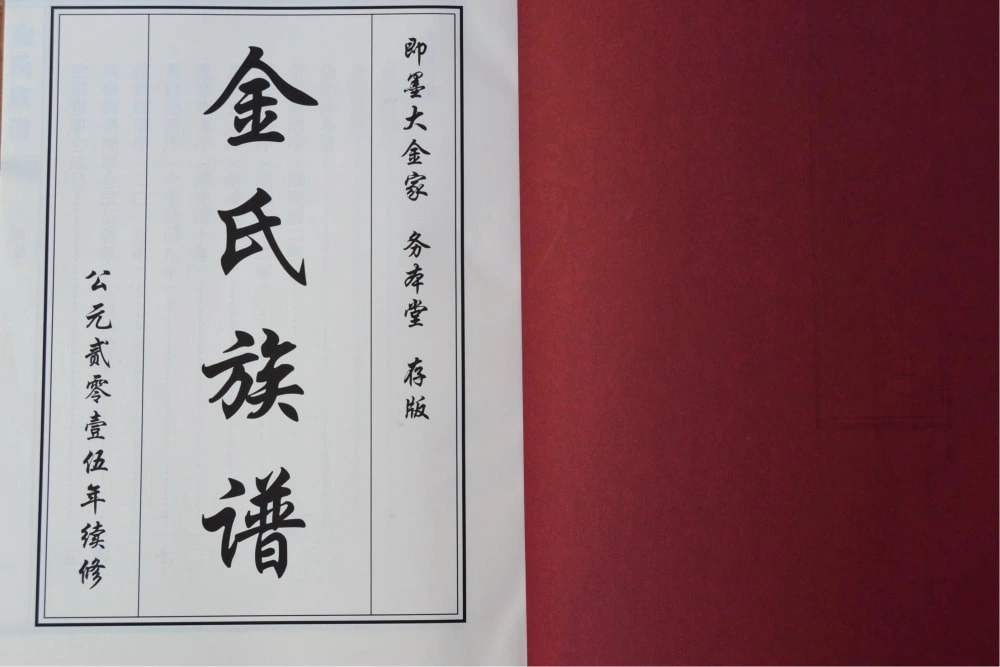 即墨大金家 务本堂 存版
金氏族谱
公元贰零壹伍年续修